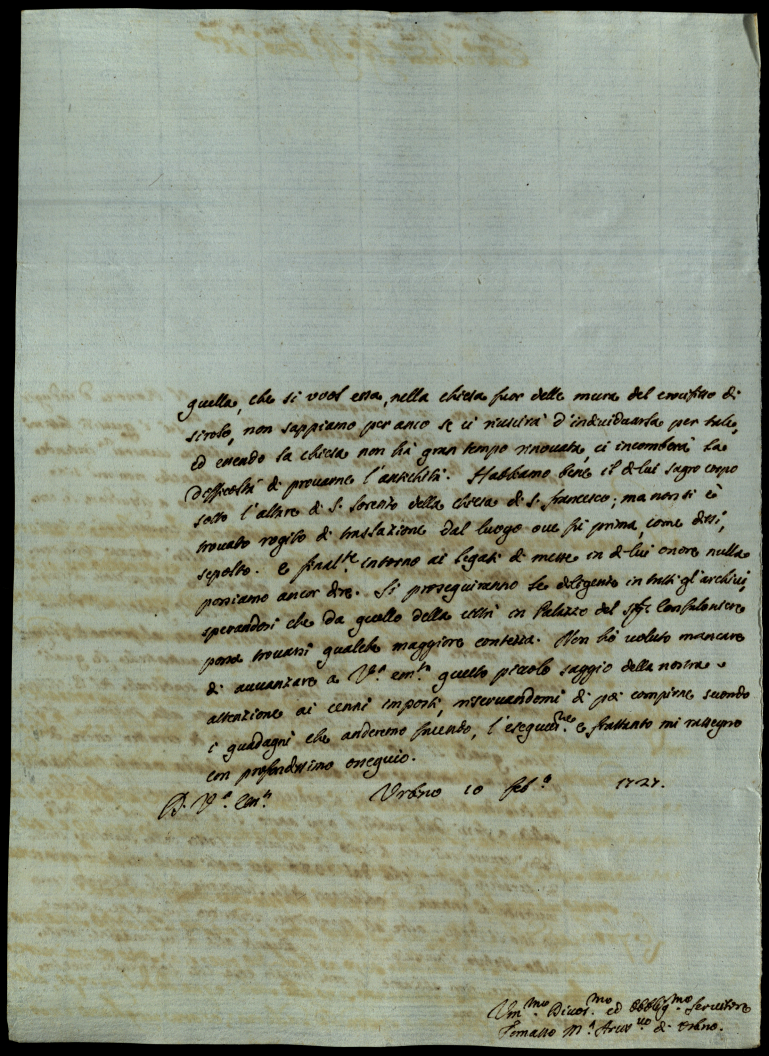 quella, che si vuol essa, nella chiesa fuor delle mura del crocifisso di
sirolo, non sappiamo per anco se ci riuscirà d'individuarla per tale,
ed essendo la chiesa non hà gran tempo rinovata, ci incomberà la
difficoltà di provarne l'antichità. Habbiamo bene il di lui sagro corpo
sotto l'altare di S. Lorenzo della chiesa di S. francesco; ma non si è
trovato rogito di traslazione dal luogo ove fù prima, come dissi,
sepolto. e final.te intorno ai legati di messe in di lui onore nulla
possiamo ancor dire. Si proseguiranno le diligenze in tutti gl'archivi,
sperandosi che da quello della città in Palazzo del Confaloniere
possa trovarsi qualche maggiore contezza. Non hò voluto mancare
di avvanzare a V.a em.za questo piccolo saggio della nostra
attenzione ai cenni imposti, riservandomi di poi compirne secondo
i guadagni che anderemo facendo, l'esecuz.ne e frattanto mi rassegno
con profondissimo ossequio.
D. V.a Em.za Urbino 10 feb.o 1727.
Um.mo Divot.mo ed Obblig.mo servitore
Tomaso M.a Arciv.vo di Urbino.